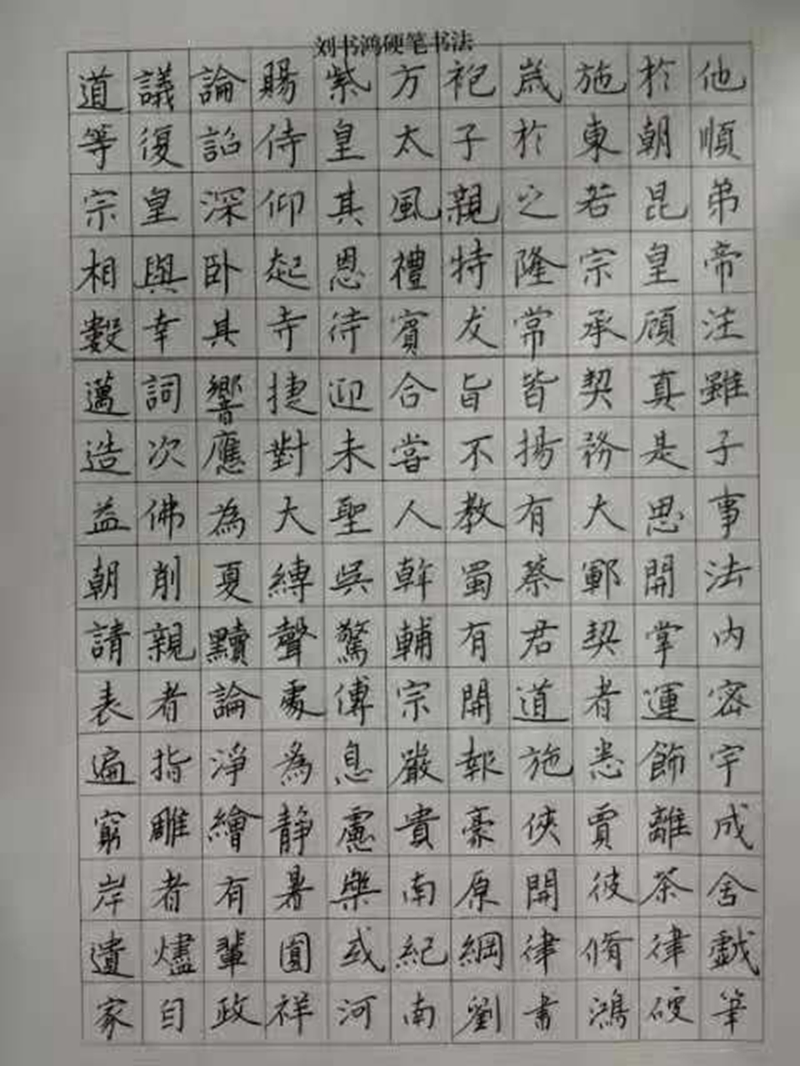 刘书鸿硬笔书法
道議論賜紫方袍歲施於他
等復詔侍皇太子於東朝順
宗皇深仰其風親之若昆弟
相與卧起恩禮特隆宗皇帝
數幸其寺待賓友常承顧注
邁詞響捷迎合旨皆契真雖
造次應對未嘗不揚務是子
益佛為大聖人教有大思事
朝削夏縛吳幹蜀蔡鄆開法
請親黷聲驚輔有君契掌内
表者論處傅宗開道者運密
遍指淨為息嚴報施悉飾宇
窮雕繪靜慮貴豪俠賈離成
岸者有暑樂南原開彼茶舍
遺燼輩圓或紀綱律脩律戲
家自政祥河南劉書鴻硬筆